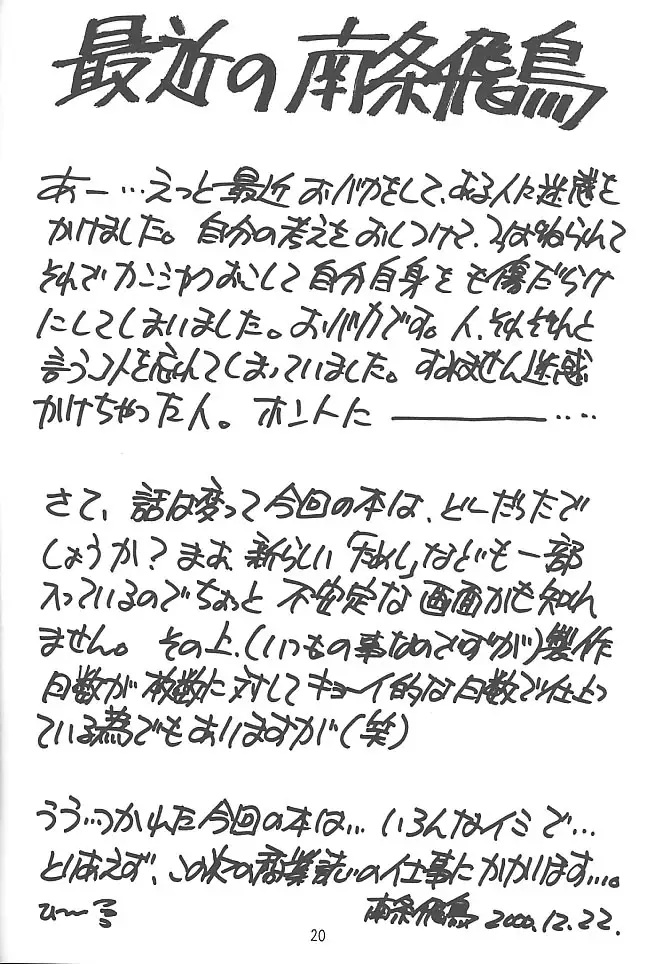 最近の南条飛鳥
あー…えっと最近おバカをして、ある人に迷惑を
かけました。自分の考えをおしつけて、つっぱねられて
それでカンシャクおこして自分自身をも傷だらけ
にしてしまいました。おバカです。人、それぞれと
言うコトを忘れてしまっていました。すいません迷惑
かけちゃった人。ホントに――――――‥‥
さて、話は変って今回の本は、どーだったで
しょうか？まぁ、新らしい「ためし」なども一部
入っているのでちょっと不安定な画面かも知れ
ません。その上、(いつもの事なのですが)製作
日数が枚数に対してキョーイ的な日数で仕上っ
ている為でもありますが(笑)
うう…つかれた今回の本は…いろんなイミで…
とりあえず、この次の商業誌の仕事にかかります…。
ひ〜る
南条飛鳥 2000.12.22.
20